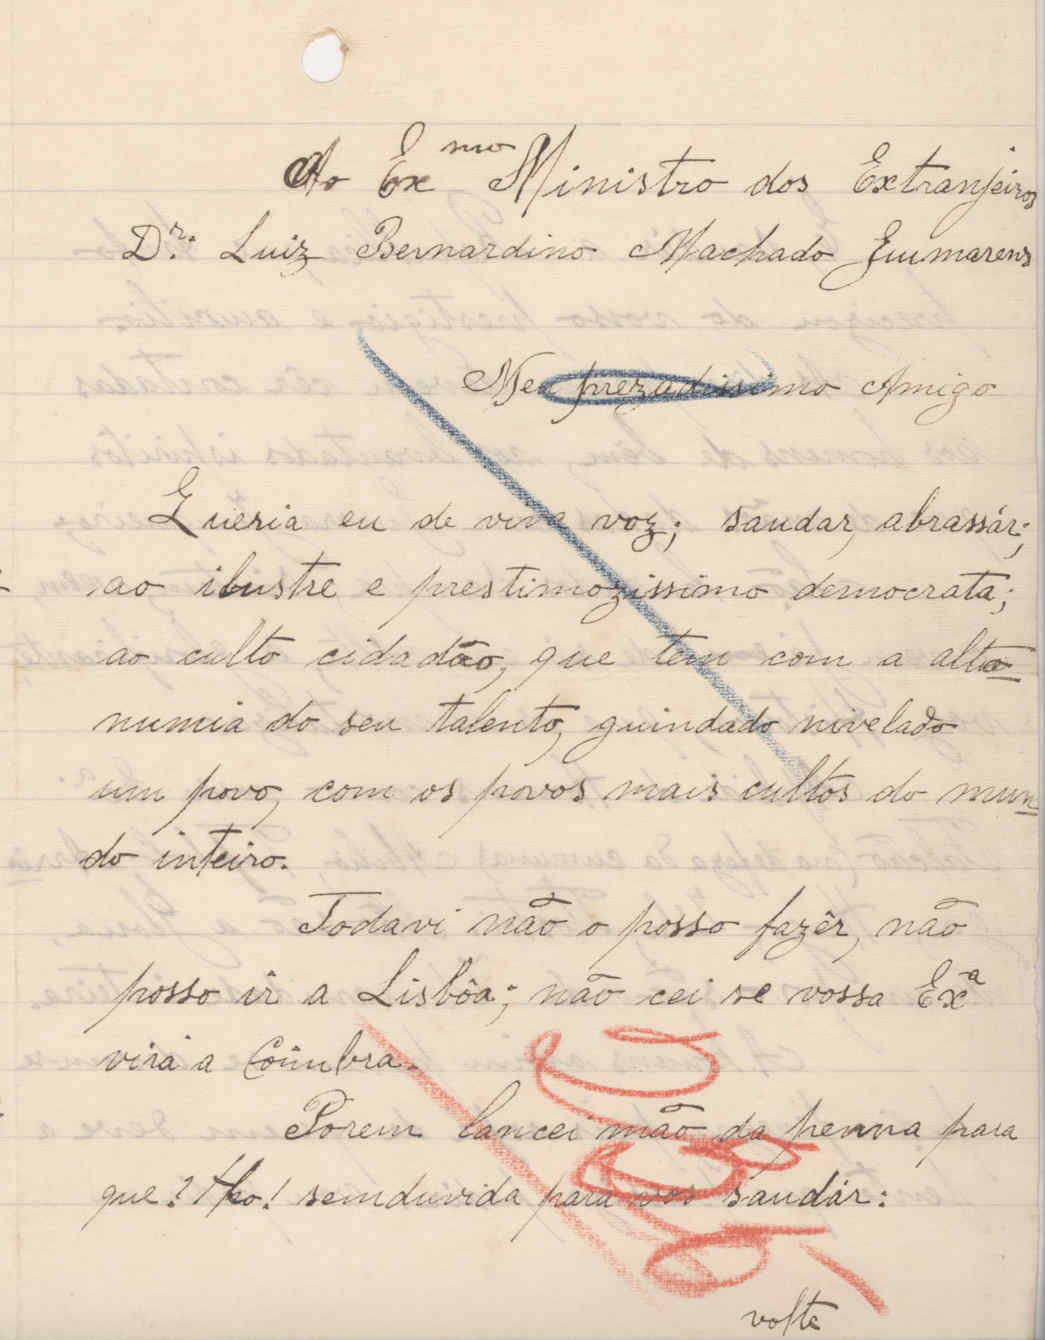 Ao Exmo Ministro dos Extranjeiros
Dr. Luiz Bernardino Machado Guimarens
Meu prezadissimo Amigo
Queria eu de viva voz; saudar, abrassár;
ao ilustre e prestimozissimo democrata;
ao culto cidadão, que tem com a alta
numia do seu talento, guindado nivelado
um povo, com os povos mais cultos do mun
do inteiro.
Todavi não o posso fazêr, não
posso ir a Lisbôa; não cei se vossa Exª
virá a Coimbra.
Porem lancei mão da penna para
que? ! semduvida para vos saudár:
volte